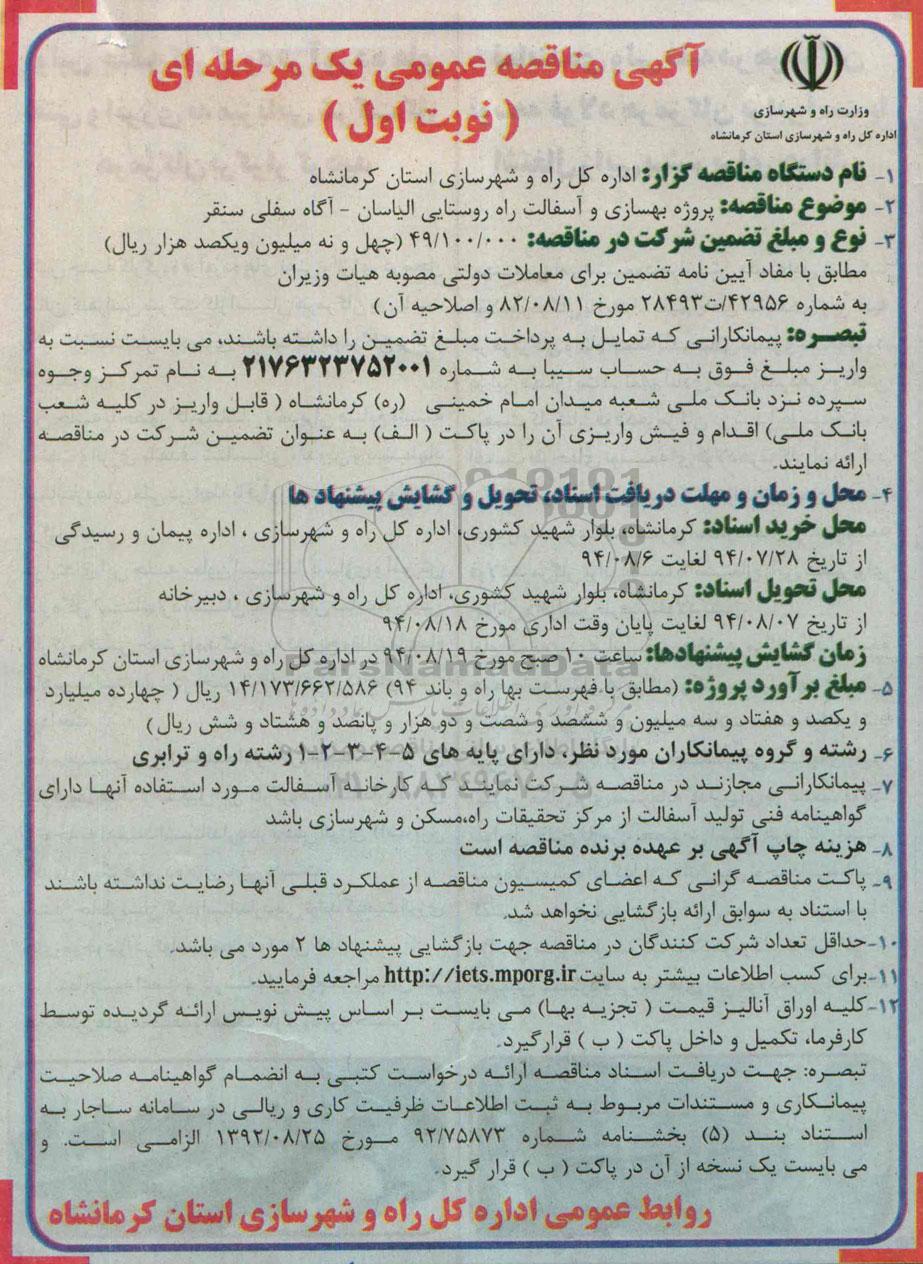 آگهی مناقصه عمومی یک مرحله ای
( نوبت اول )
وزارت راه و شهرسازی
اداره کل راه و شهرسازی استان کرمانشاه
۱- نام دستگاه مناقصه گزار: اداره کل راه و شهرسازی استان کرمانشاه
۲- موضوع مناقصه: پروژه بهسازی و آسفالت راه روستایی الیاسان - آگاه سفلی سنقر
۳- نوع و مبلغ تضمین شرکت در مناقصه: ۴۹/۱۰۰/۰۰۰ (چهل و نه میلیون ویکصد هزار ریال)
مطابق با مفاد آیین نامه تضمین برای معاملات دولتی مصوبه هیات وزیران
به شماره ۴۲۹۵۶/ت۲۸۴۹۳ مورخ ۸۲/۰۸/۱۱ و اصلاحیه آن )
تبصره: پیمانکارانی که تمایل به پرداخت مبلغ تضمین را داشته باشند، می بایست نسبت به
واریز مبلغ فوق به حساب سیبا به شماره ۲۱۷۶۳۲۳۷۵۲۰۰۱ به نام تمرکز وجوه
سپرده نزد بانک ملی شعبه میدان امام خمینی (ره) کرمانشاه ( قابل واریز در کلیه شعب
بانک ملی) اقدام و فیش واریزی آن را در پاکت ( الف) به عنوان تضمین شرکت در مناقصه
ارائه نمایند.
۴- محل و زمان و مهلت دریافت اسناد، تحویل و گشایش پیشنهاد ها
محل خرید اسناد: کرمانشاه، بلوار شهید کشوری، اداره کل راه و شهرسازی ، اداره پیمان و رسیدگی
از تاریخ ۹۴/۰۷/۲۸ لغایت ۹۴/۰۸/۶
محل تحویل اسناد: کرمانشاه، بلوار شهید کشوری، اداره کل راه و شهرسازی ، دبیرخانه
از تاریخ ۹۴/۰۸/۰۷ لغایت پایان وقت اداری مورخ ۹۴/۰۸/۱۸
زمان گشایش پیشنهادها: ساعت ۱۰ صبح مورخ ۹۴/۰۸/۱۹ در اداره کل راه و شهرسازی استان کرمانشاه
ParsNamadData
۵- مبلغ برآورد پروژه: (مطابق با فهرست بها راه و باند ۹۴) ۱۴/۱۷۳/۶۶۲/۵۸۶ ریال ( چهارده میلیارد
و یکصد و هفتاد و سه میلیون و ششصد و شصت و دو هزار و پانصد و هشتاد و شش ریال)
۶- رشته و گروه پیمانکاران مورد نظر، دارای پایه های ۵-۴-۳-۲-۱ رشته راه و ترابری
۷- پیمانکارانی مجازند در مناقصه شرکت نمایند که کارخانه آسفالت مورد استفاده آنها دارای
گواهینامه فنی تولید آسفالت از مرکز تحقیقات راه،مسکن و شهرسازی باشد
۸- هزینه چاپ آگهی بر عهده برنده مناقصه است
۹- پاکت مناقصه گرانی که اعضای کمیسیون مناقصه از عملکرد قبلی آنها رضایت نداشته باشند
با استناد به سوابق ارائه بازگشایی نخواهد شد.
۱۰-حداقل تعداد شرکت کنندگان در مناقصه جهت بازگشایی پیشنهاد ها ۲ مورد می باشد.
۱۱-برای کسب اطلاعات بیشتر به سایت http://iets.mporg.ir مراجعه فرمایید.
۱۲-کلیه اوراق آنالیز قیمت ( تجزیه بها) می بایست بر اساس پیش نویس ارائه گردیده توسط
کارفرما، تکمیل و داخل پاکت ( ب ) قرارگیرد.
تبصره: جهت دریافت اسناد مناقصه ارائه درخواست کتبی به انضمام گواهینامه صلاحیت
پیمانکاری و مستندات مربوط به ثبت اطلاعات ظرفیت کاری و ریالی در سامانه ساجار به
استناد بند (۵) بخشنامه شماره ۹۲/۷۵۸۷۳ مورخ ۱۳۹۲/۰۸/۲۵ الزامی است. و
می بایست یک نسخه از آن در پاکت ( ب ) قرار گیرد.
روابط عمومی اداره کل راه و شهرسازی استان کرمانشاه